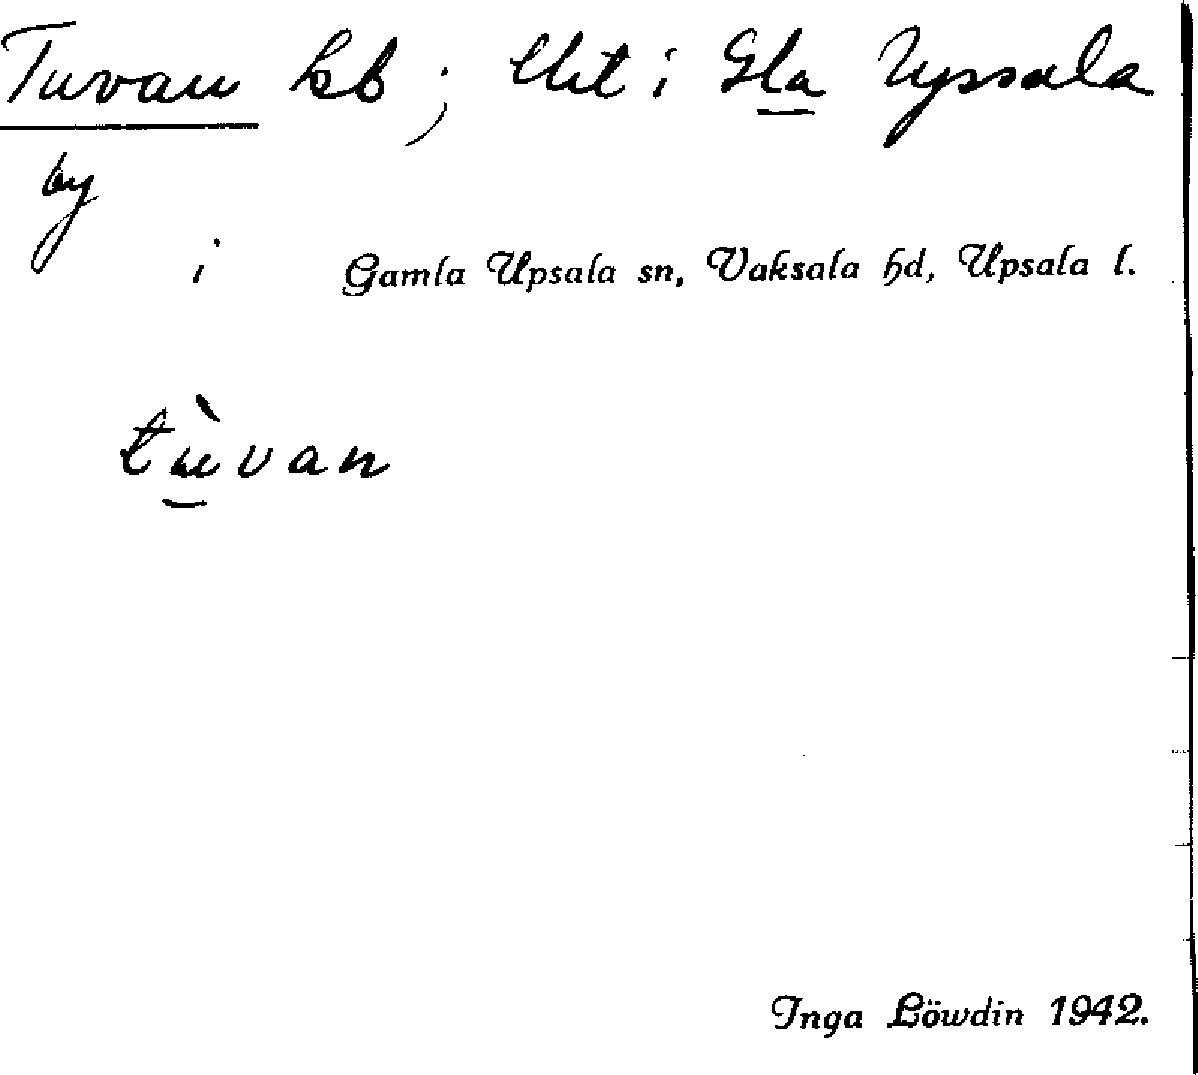 Tuvan lb; Utt i Gla Uppsala
by
i Gamla Upsala sn, Vaksala hd, Upsala l.
tu̱̇̀van
Inga Löwdin 1942.